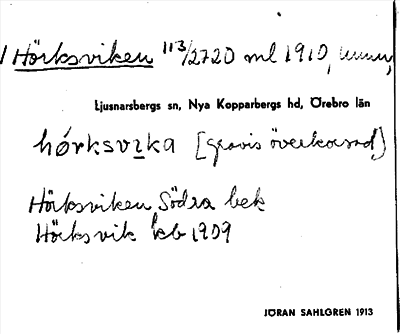 1 Hörksviken 113/2720 ml 1910,
Ljusnarsbergs sn, Nya Kopparbergs hd, Örebro län
hö́rksvɪka [gravis överkorsad]
Hörksviken Södra bek
Hörksvik kb 1909
JÖRAN SAHLGREN 1913